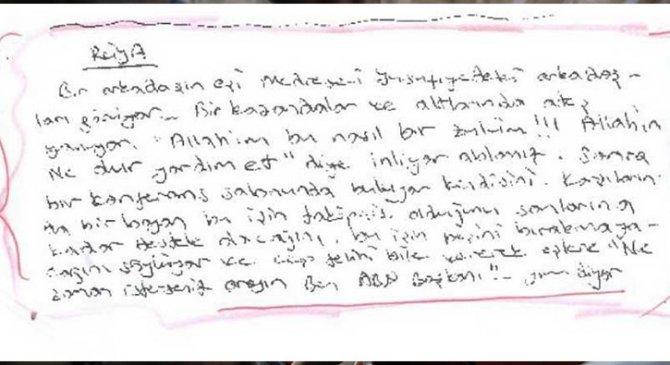 Rüya
Bir arkadaşın eşi Medreseyi Yusufiyedeki arkadaş-
ları görüyor... Bir kazandalar ve altlarında ateş
yanıyor. "Allahım bu nasıl bir zulüm!!! Allahım
Ne olur yardım et" diye inliyor ablamız. Sonra
bir konferans salonunda buluyor kendisini. Karşıların-
da bir bayan bu işin takipçisi olduğunu sonlarına
kadar destek olacağını, bu işin peşini bırakmaya-
cağını söylüyor ve cep telini bile vererek eşlere "Ne
zaman isterseniz arayın Ben ABD Başkanı"- yım diyor